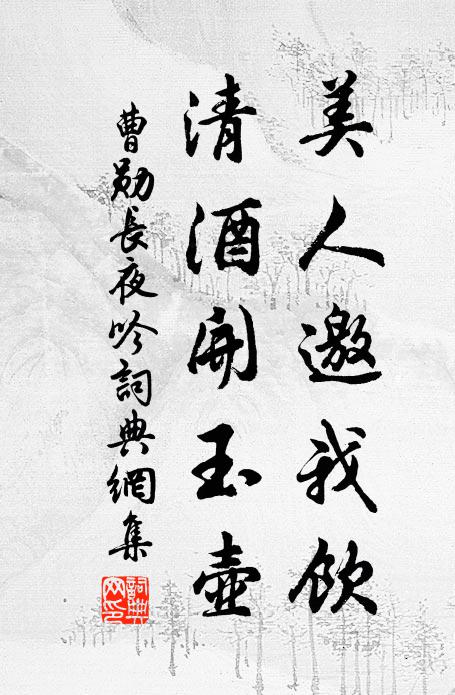 美人邀我飲
清酒開玉壺
曹勛長夜吟詞典網集
詞典